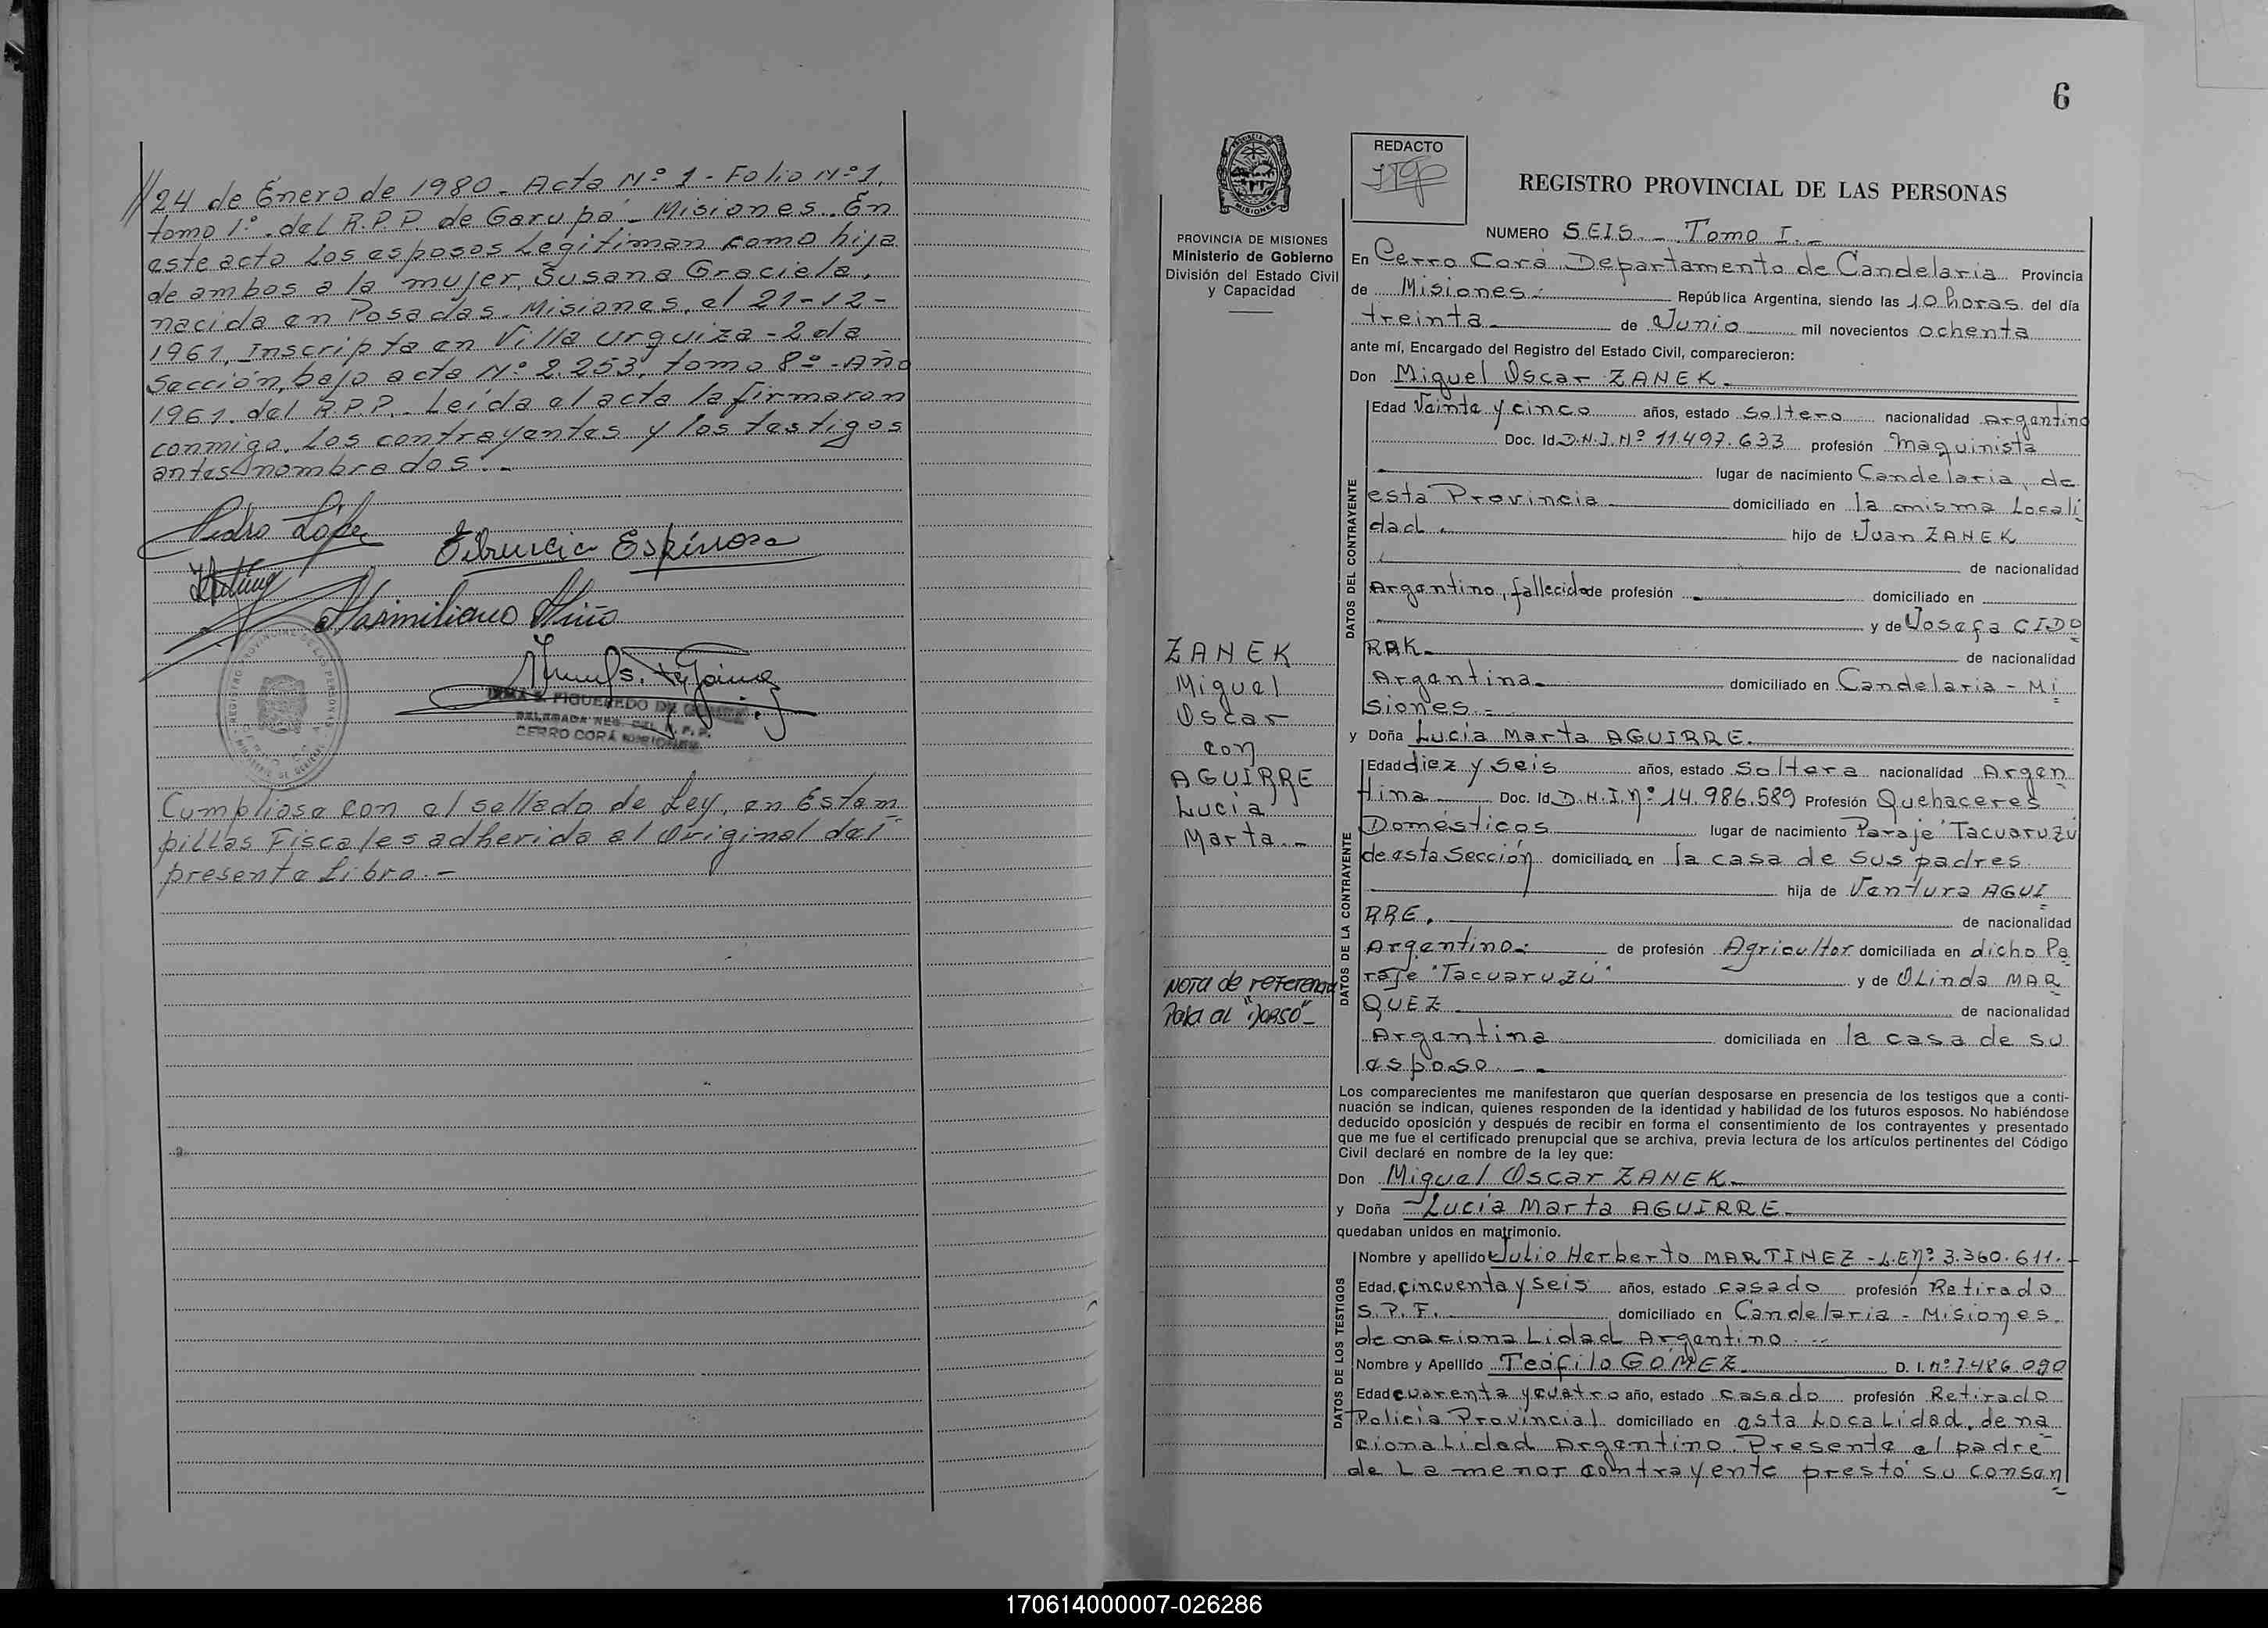 //24 de Enero de 1980. Acta Nº 1 - Folio Nº 1,
tomo 1º. del R.P.P. de Garupá - Misiones. En
este acto los esposos legitiman como hija
de ambos a la mujer, Susana Graciela,
nacida en Posadas. Misiones, el 21-12-
1961, Inscripta en Villa Urquiza - 2da
Sección, bajo acta Nº 2.253, tomo 8º - Año
1961. del R.P.P. Leída el acta la firmaron
conmigo, los contrayentes y los testigos
antes nombrados.-
Pedro López
Espinosa
Maximiliano
IRMA S. FIGUEREDO DE
DELEGADA REG. DEL R. P. P.
CERRO CORÁ MISIONES
Cumpliose con el sellado de Ley, en Estam
pillas Fiscales adherida al Original del
presente Libro.-
6
REDACTO
REGISTRO PROVINCIAL DE LAS PERSONAS
PROVINCIA DE MISIONES
Ministerio de Gobierno
División del Estado Civil
y Capacidad
ZANEK
Miguel
Oscar
con
AGUIRRE
Lucia
Marta.-
Nota de referencia
Pasa al "Dorso"-
NUMERO SEIS.- Tomo I.-
En Cerro Corá Departamento de Candelaria Provincia
de Misiones.- República Argentina, siendo las 10 horas del día
treinta de Junio mil novecientos ochenta
ante mí, Encargado del Registro del Estado Civil, comparecieron:
Don Miguel Oscar ZANEK.
DATOS DEL CONTRAYENTE
Edad Veinte y cinco años, estado Soltero nacionalidad Argentino
Doc. Id. D.N.I. Nº 11.497.633 profesión Maquinista
lugar de nacimiento Candelaria, de
esta Provincia domiciliado en la misma Locali
dad. hijo de Juan ZANEK
de nacionalidad
Argentino, fallecido de profesión domiciliado en
y de Josefa CIDO
RAK. de nacionalidad
Argentina domiciliado en Candelaria - Mi
siones.-
y Doña Lucia Marta AGUIRRE.
DATOS DE LA CONTRAYENTE
Edad diez y seis años, estado Soltera nacionalidad Argen
tina Doc. Id. D.N.I. Nº 14.986.589 Profesión Quehaceres
Domésticos lugar de nacimiento Paraje "Tacuaruzú
de esta Sección domiciliada en la casa de sus padres
hija de Ventura AGUI
RRE. de nacionalidad
Argentino.- de profesión Agricultor domiciliada en dicho Pa
raje "Tacuaruzú" y de OLinda MAR
QUEZ de nacionalidad
Argentina domiciliada en la casa de su
esposo.-
Los comparecientes me manifestaron que querían desposarse en presencia de los testigos que a conti-
nuación se indican, quienes responden de la identidad y habilidad de los futuros esposos. No habiéndose
deducido oposición y después de recibir en forma el consentimiento de los contrayentes y presentado
que me fue el certificado prenupcial que se archiva, previa lectura de los artículos pertinentes del Código
Civil declaré en nombre de la ley que:
Don Miguel Oscar ZANEK
y Doña Lucia Marta AGUIRRE
quedaban unidos en matrimonio.
DATOS DE LOS TESTIGOS
Nombre y apellido Julio Herberto MARTINEZ - L.E Nº 3.360.611.-
Edad. cincuenta y seis años, estado casado profesión Retirado
S.P.F. domiciliado en Candelaria - Misiones.
de nacionalidad Argentino.-
Nombre y Apellido Teófilo GÓMEZ D. I. Nº 7.486.090
Edad cuarenta y cuatro año, estado casado profesión Retirado
Policía Provincial domiciliado en esta Localidad, de na
cionalidad Argentino. Presente el padre
de la menor contrayente prestó su consen
170614000007-026286